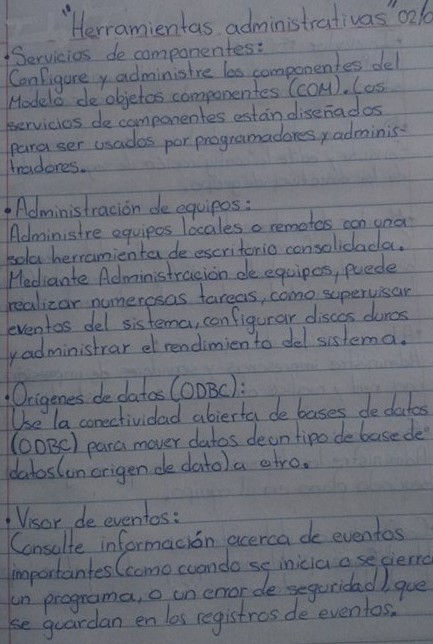 "Herramientas administrativas" 02/0
• Servicios de componentes:
Configure y administre los componentes del
Modelo de objetos componentes (COM). Los
servicios de componentes están diseñados
para ser usados por programadores y adminis-
tradores.
• Administración de equipos:
Administre equipos locales o remotos con una
sola herramienta de escritorio consolidada.
Mediante Administración de equipos, puede
realizar numerosas tareas, como supervisar
eventos del sistema, configurar discos duros
y administrar el rendimiento del sistema.
• Orígenes de datos (ODBC):
Use la conectividad abierta de bases de datos
(ODBC) para mover datos de un tipo de base de
datos (un origen de dato) a otro.
• Visor de eventos:
Consulte información acerca de eventos
importantes (como cuando se inicia o se cierra
un programa, o un error de seguridad) que
se guardan en los registros de eventos.